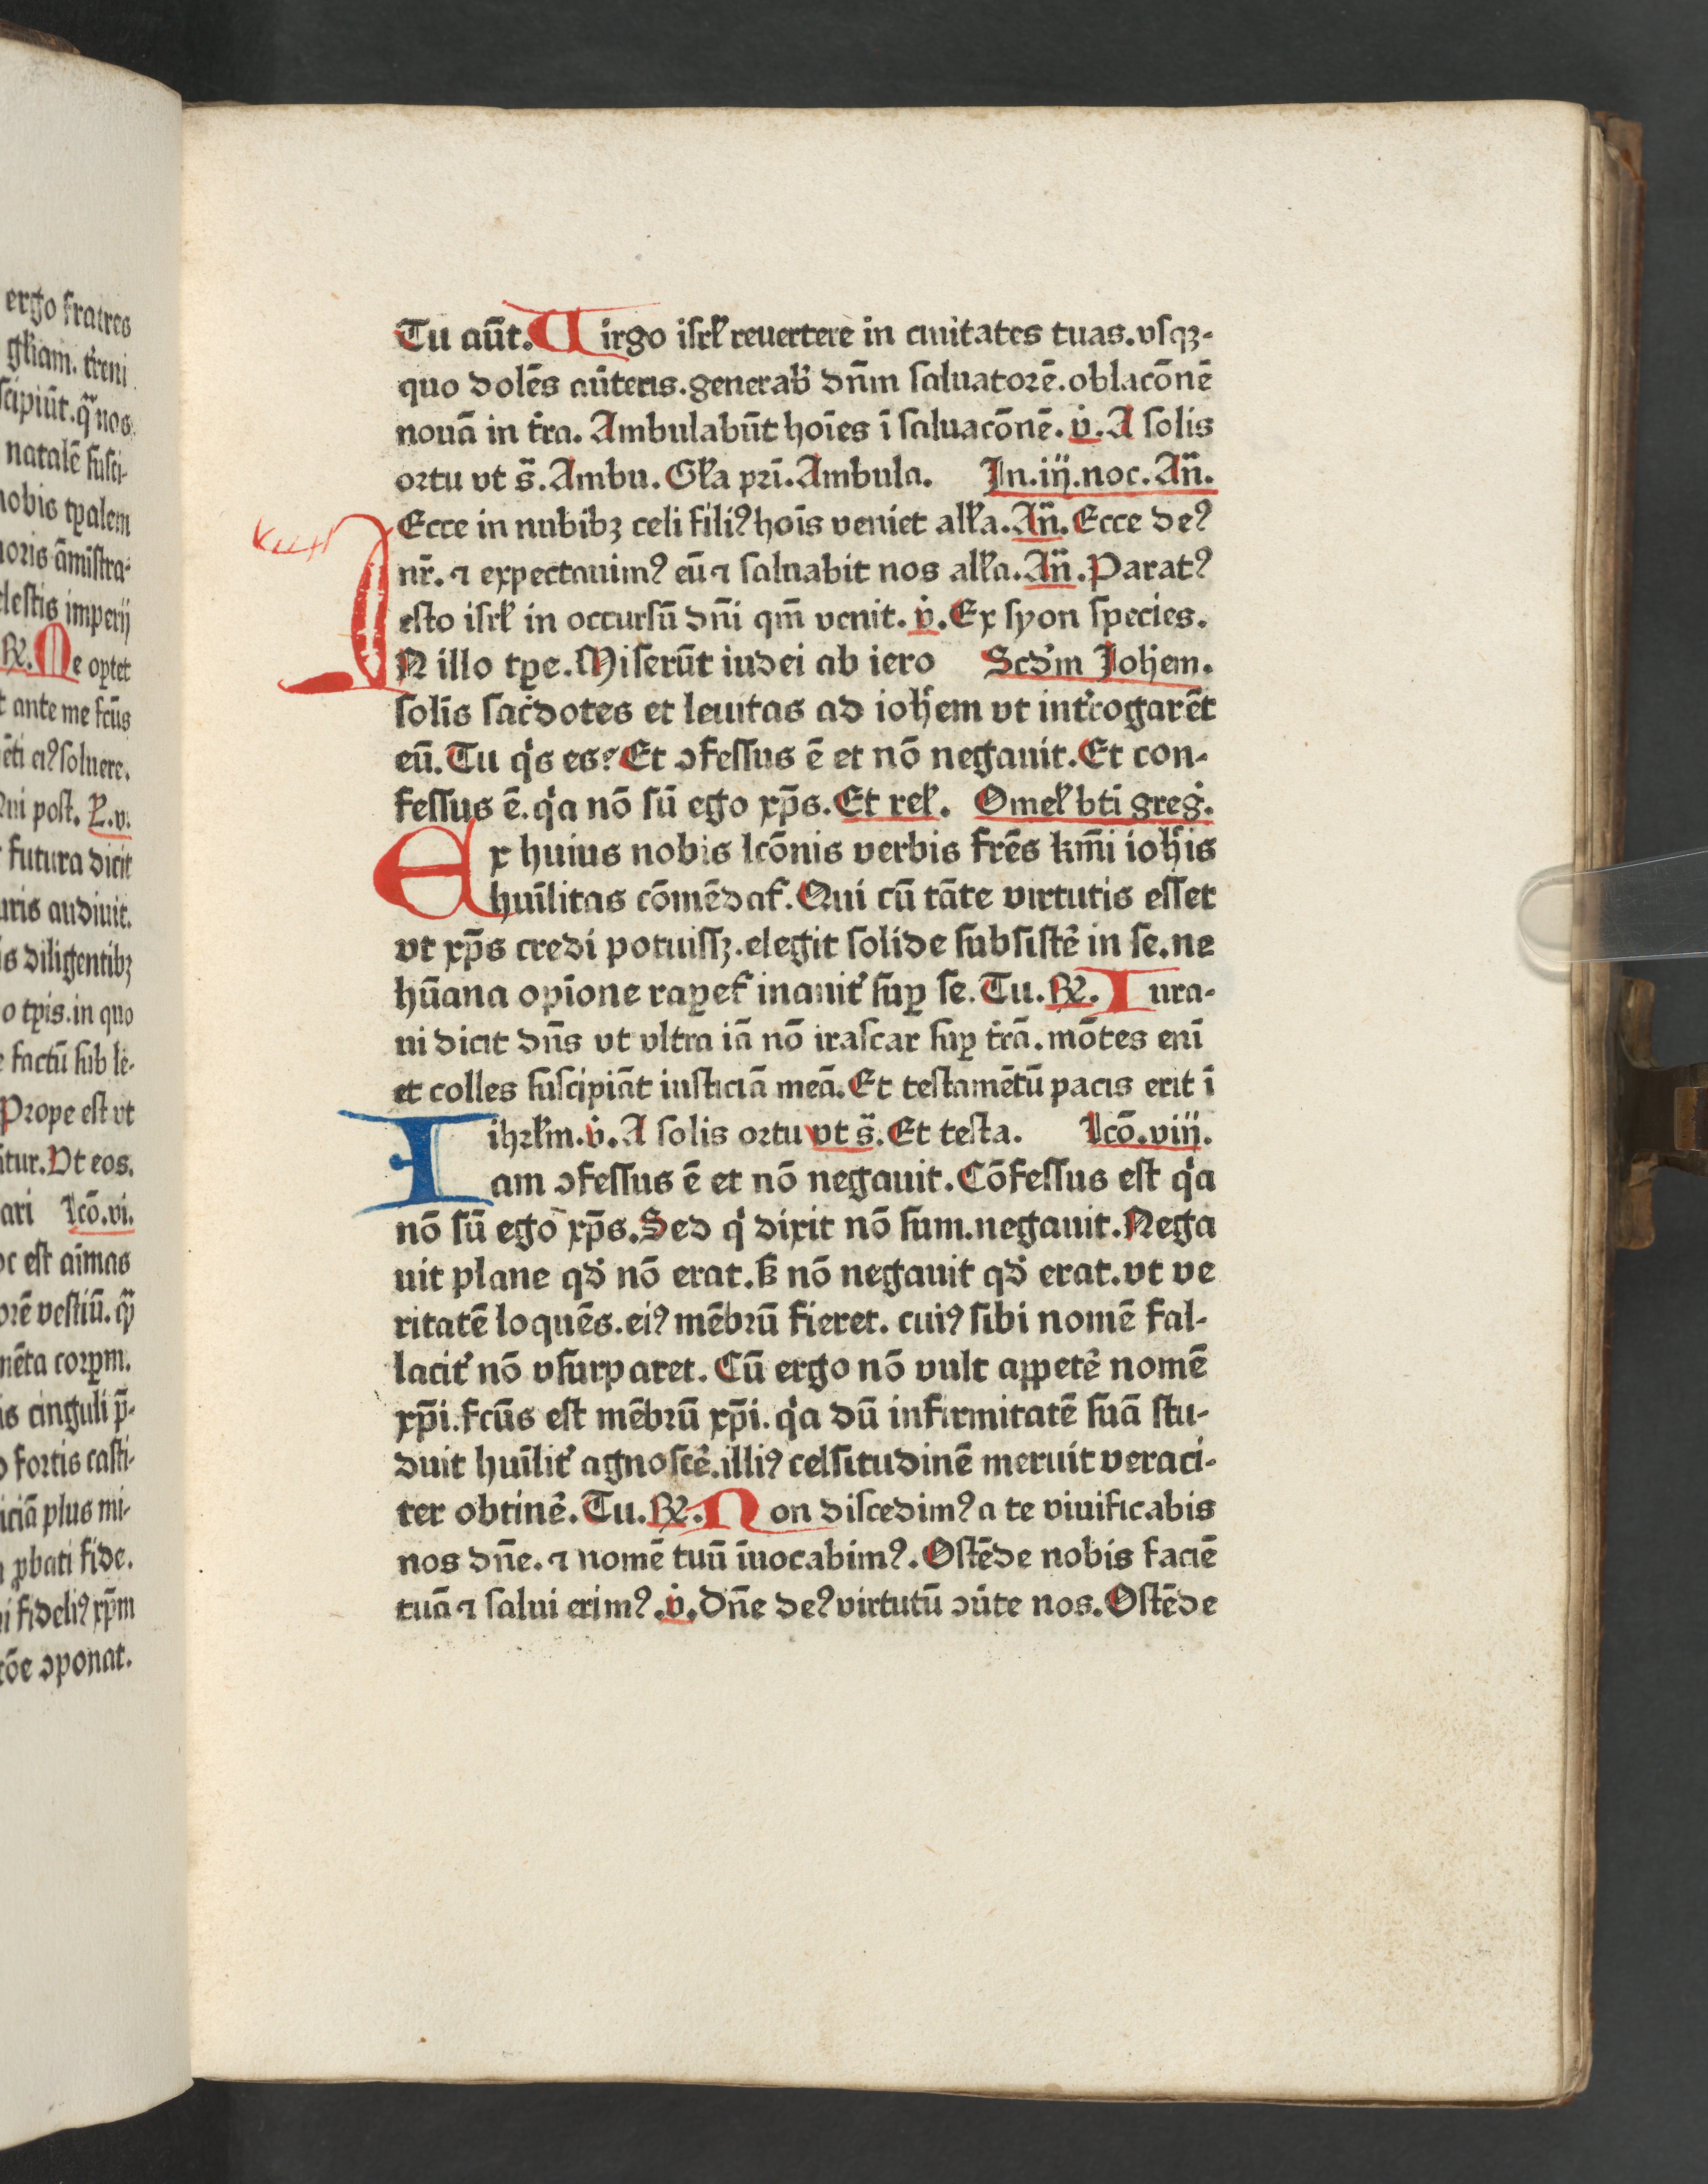 ergo fratres
gl̄iam. t̄reni
scipiūt. q̄ nos
natalē susci-
nobis tp̄alem
noris ām̄istra-
lestis imperij
R̷. Me op̄tet
t ante me fcūs
ēti eiꝰ soluere.
Qui post. P̷.v.
futura dicit
uris audiuit.
is diligentibꝫ
o tp̄is. in quo
e factū sub le-
Prope est vt
itur. Vt eos.
ari lcō.vi.
oc est aīmas
orē vestiū. qꝫ
mēta corpm.
is cinguli p̄-
o fortis casti-
iciā plus mi-
n ꝓbati fide.
ni fideliꝰ xp̄m
cōe ɔponat.
Tu aūt. Uirgo isrl̄ reuertere in ciuitates tuas. vsqꝫ-
quo dolēs aūteris. generab̄ dn̄m saluatorē. oblacōnē
nouā in t̄ra. Ambulabūt hoīes ī saluacōnē. v̇. A solis
ortu vt s̄. Ambu. Gl̄a pri. Ambula. In.iij.noc. An̄.
Ecce in nubibꝫ celi filiꝰ hoīs veniet all̄a. An̄. Ecce deꝰ
nr̄. ⁊ expectauimꝰ eū ⁊ saluabit nos all̄a. An̄. Paratꝰ
esto isrl̄ in occursū dn̄i qm̄ venit. v̇. Ex syon species.
IN illo tp̄e. Miserūt iudei ab iero Scd̄m Joh̄em.
solis sac̄dotes et leuitas ad ioh̄em vt int̄rogarēt
eū. Tu qͥs es? Et ɔfessus ē et nō negauit. Et con-
fessus ē. qͥa nō sū ego xp̄s. Et rel̄. Omel̄ bt̄i greġ.
Ex huius nobis lcōnis verbis fr̄es km̄i ioh̄is
huīlitas cōmēdat̄. Qui cū tāte virtutis esset
vt xp̄s credi potuissꝫ. elegit solide subsistē in se. ne
hūana opīone rapet̄ inanit̄ sup̱ se. Tu. R̷. Iura-
ui dicit dn̄s vt vltra iā nō irascar sup̱ t̄rā. mōtes eni
et colles suscipiāt iusticiā meā. Et testamētū pacis erit ī
ihrl̄m. v̇. A solis ortu vt s̄. Et testa. Lcō.viij.
Iam ɔfessus ē et nō negauit. Cōfessus est qͥa
nō sū ego xp̄s. Sed qͥ dixit nō sum. negauit. Nega
uit plane qd̄ nō erat. ẞ nō negauit qd̄ erat. vt ve
ritatē loquēs. eiꝰ mēbrū fieret. cuiꝰ sibi nomē fal-
lacit̄ nō vsurparet. Cū ergo nō vult appetē nomē
xp̄i. fcūs est mēbrū xp̄i. qͥa dū infirmitatē suā stu-
duit huīlit̄ agnoscē. illiꝰ celsitudinē meruit veraci-
ter obtinē. Tu. R̷. Non discedimꝰ a te viuificabis
nos dn̄e. ⁊ nomē tuū īuocabimꝰ. Ostēde nobis faciē
tuā ⁊ salui erimꝰ. v̇. Dn̄e deꝰ virtutū ɔūte nos. Ostēde